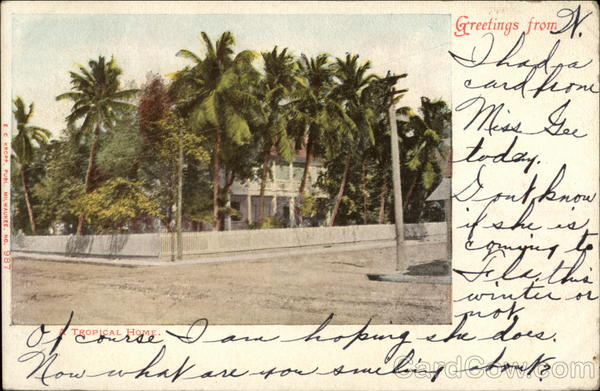 Greetings from
N.
I had a
card from
Miss Gee
today.
Dont know
if she is
coming to
Fla. this
winter or
not.
Of course I am hoping she does.
Now what are you smiling about
A Tropical Home.
E. C. Kropp, Publ. Milwaukee. No. 987
CardCow.com